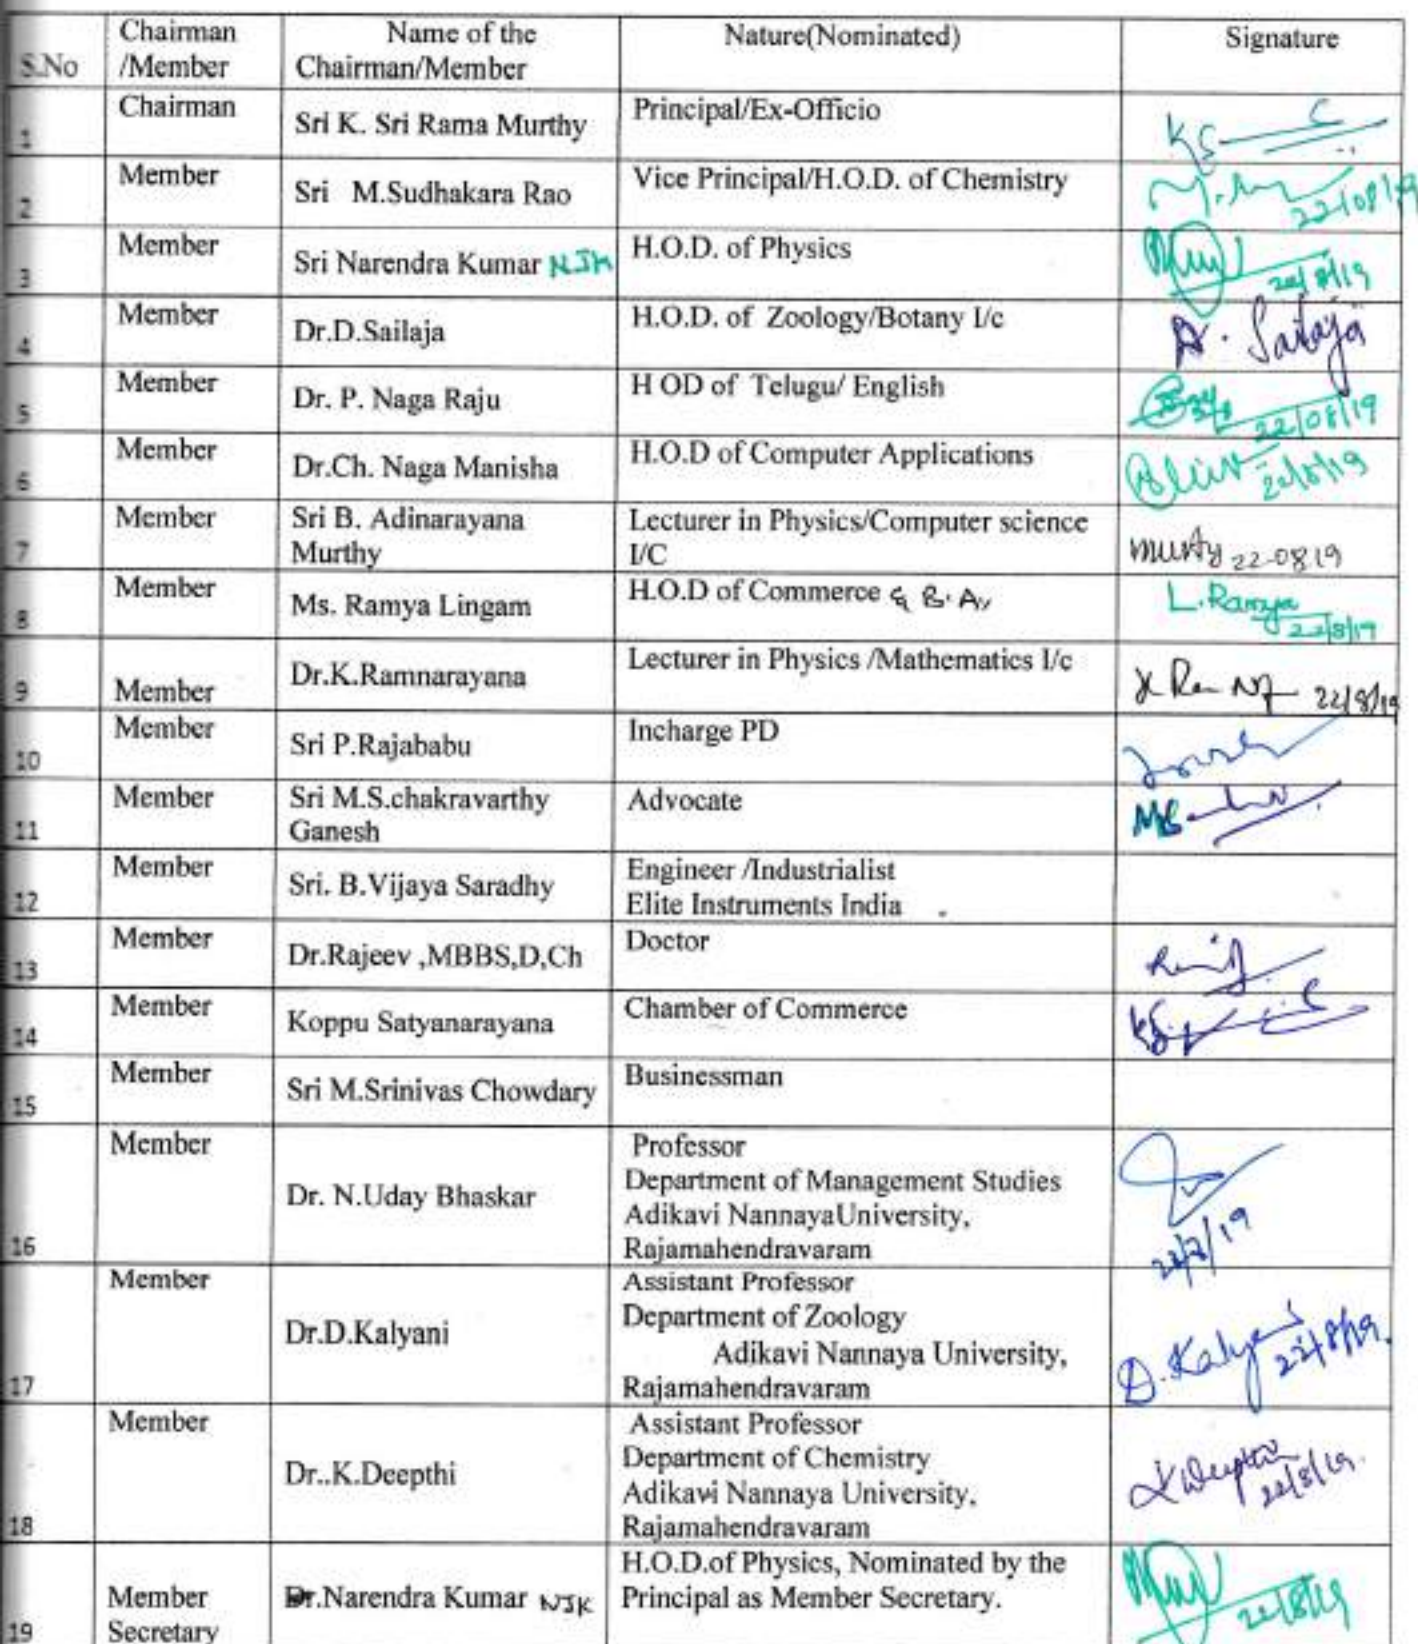 S.No Chairman /Member Name of the Chairman/Member Nature(Nominated) Signature
1 Chairman Sri K. Sri Rama Murthy Principal/Ex-Officio
2 Member Sri M.Sudhakara Rao Vice Principal/H.O.D. of Chemistry 22/08/19
3 Member Sri Narendra Kumar NJK H.O.D. of Physics 22/8/19
4 Member Dr.D.Sailaja H.O.D. of Zoology/Botany I/c D. Sailaja
5 Member Dr. P. Naga Raju H OD of Telugu/ English 22/08/19
6 Member Dr.Ch. Naga Manisha H.O.D of Computer Applications 22/8/19
7 Member Sri B. Adinarayana Murthy Lecturer in Physics/Computer science I/C Murty 22-08-19
8 Member Ms. Ramya Lingam H.O.D of Commerce & B.A, L.Ramya 22/8/19
9 Member Dr.K.Ramnarayana Lecturer in Physics /Mathematics I/c 22/8/19
10 Member Sri P.Rajababu Incharge PD
11 Member Sri M.S.chakravarthy Ganesh Advocate
12 Member Sri. B.Vijaya Saradhy Engineer /Industrialist
Elite Instruments India
13 Member Dr.Rajeev ,MBBS,D,Ch Doctor
14 Member Koppu Satyanarayana Chamber of Commerce
15 Member Sri M.Srinivas Chowdary Businessman
16 Member Dr. N.Uday Bhaskar Professor
Department of Management Studies
Adikavi NannayaUniversity,
Rajamahendravaram
17 Member Dr.D.Kalyani Assistant Professor
Department of Zoology
Adikavi Nannaya University,
Rajamahendravaram
D.Kalyani 22/8/19.
18 Member Dr..K.Deepthi Assistant Professor
Department of Chemistry
Adikavi Nannaya University,
Rajamahendravaram
K Deepthi 22/8/19.
19 Member Secretary Dr.Narendra Kumar NJK H.O.D.of Physics, Nominated by the
Principal as Member Secretary.
22/8/19